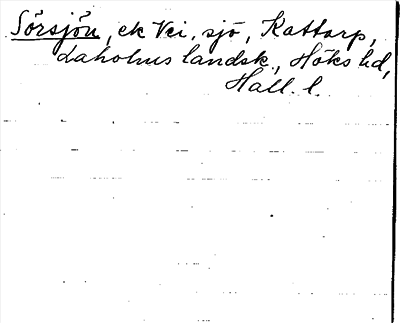 Sörsjön, ek Vei, sjö, Kattarp,
Laholms landsk., Höks hd,
Hall. l.